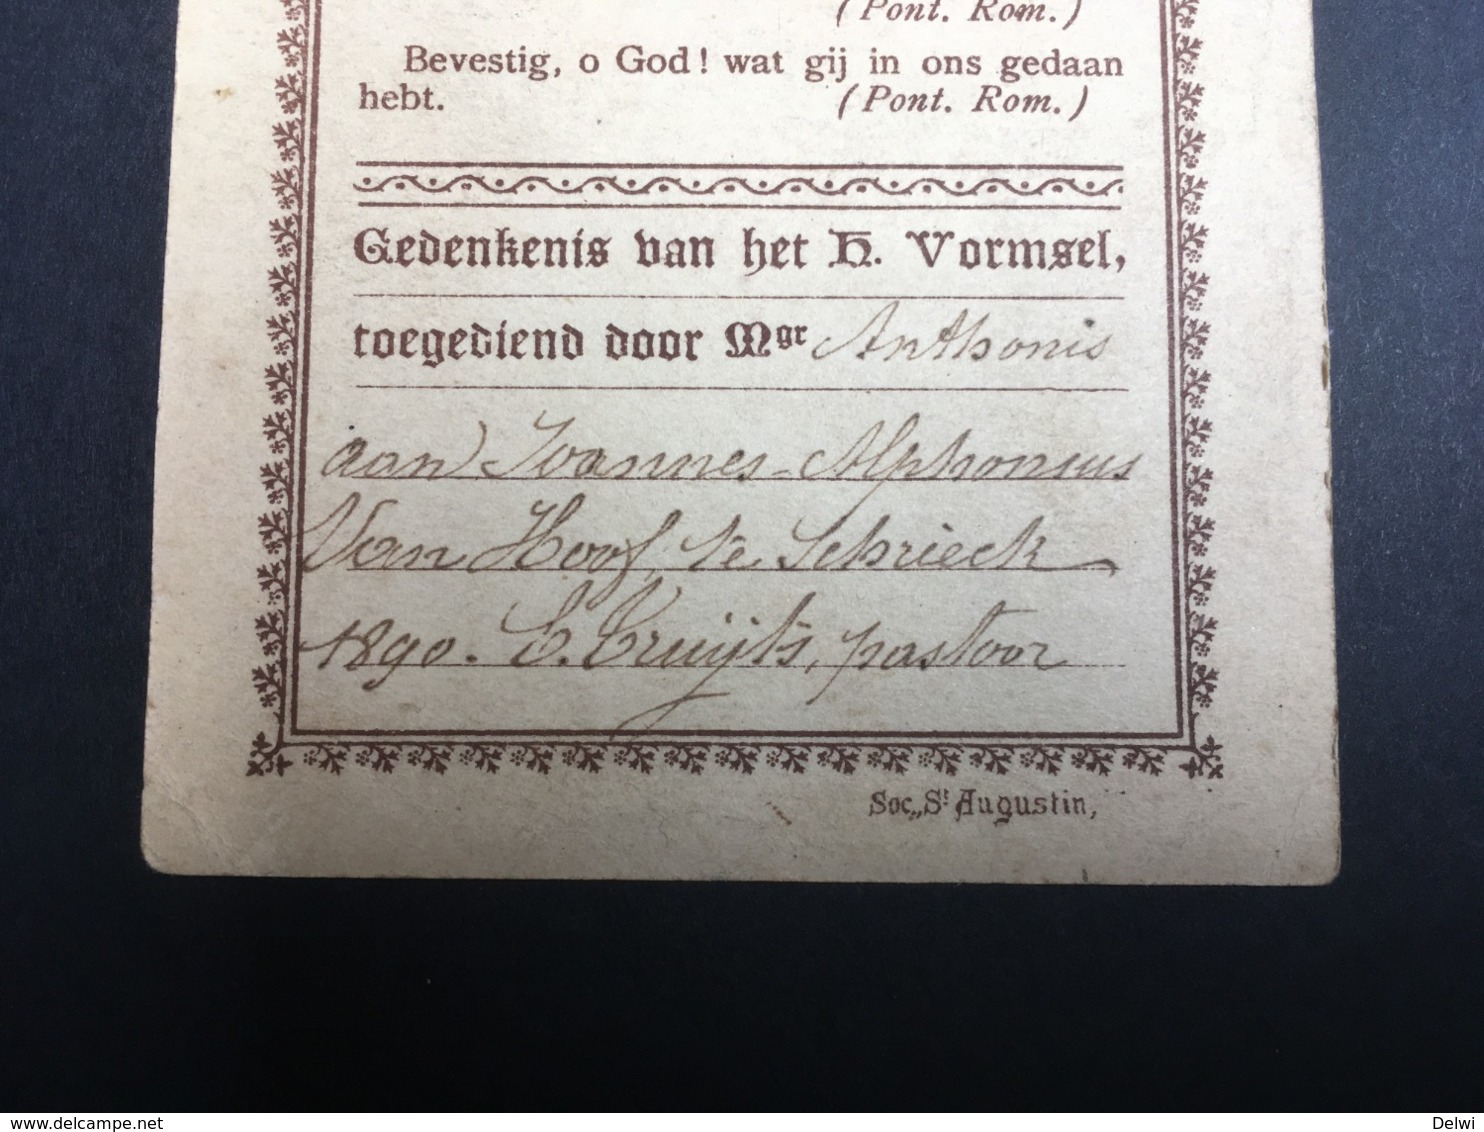 (Pont. Rom.)
Bevestig, o God! wat gij in ons gedaan
hebt. (Pont. Rom.)
Gedenkenis van het H. Vormsel,
toegediend door Mgr Anthonis
aan Joannes-Alphonsus
Van Hoof, te Schrieck
1890. C. Cruijts, pastoor
Soc. St Augustin,
www.delcampe.net
Delwi